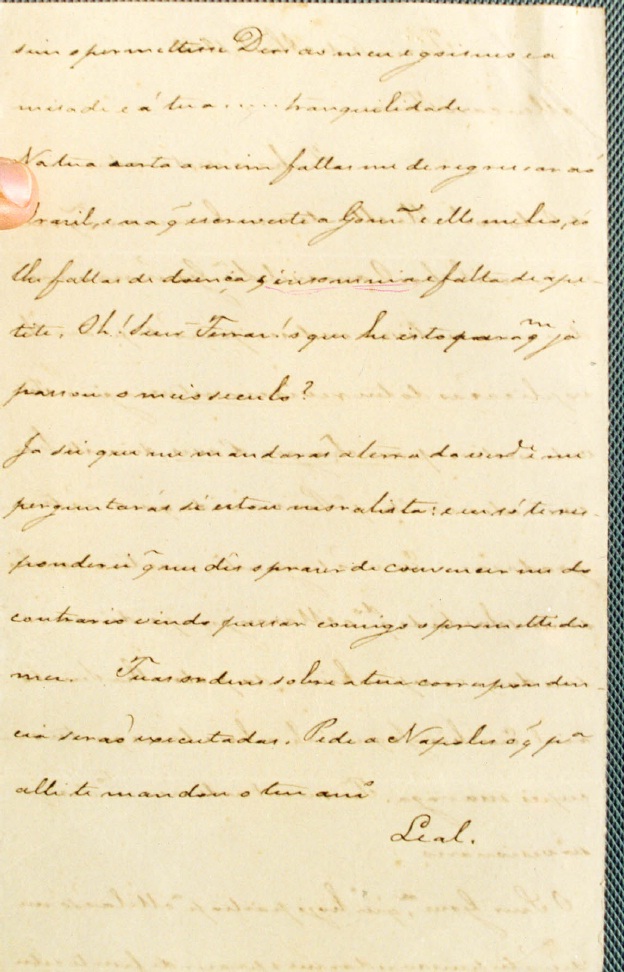 sim o permettisse Deos ao meu egoismo e a
misade e á tua tranquilidade
Na tua carta a mim fallas me de regressar ao
Brazil, e na q̃ escreveste a Gom.ͤˢ e elle me leo, só
lhe fallas de doença, insomnia e falta de ape-
tite. Oh! Seur Ferrar! o que he isto para q.ᵐ já
passou o meio seculo?
Ja sei que me mandaras á terra do verd.ᵉ e me
perguntarás se estou moralista: e eu só te res-
ponderei q̃ me dês o prazer de convencer me do
contrario vindo passar comigo o promettido
mez. Tuas ordens sobre a tua corresponden-
cia serão executadas. Pede a Napoles o q̃ p.ᵃ
alli te mandou o teu am.º
Leal.